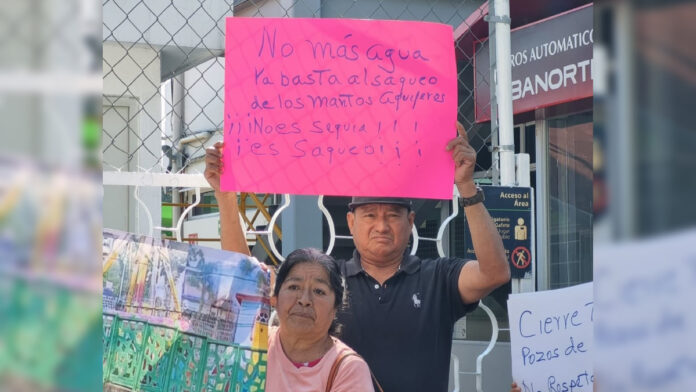 No más agua
Ya basta al saqueo
de los mantos Aquiferos
¡¡¡No es sequia!!!
¡es Saqueo¡¡¡
ROS AUTOMATICO
BANORTE
Acceso al
Área
CierrE
Pozos de
Ni Respeto